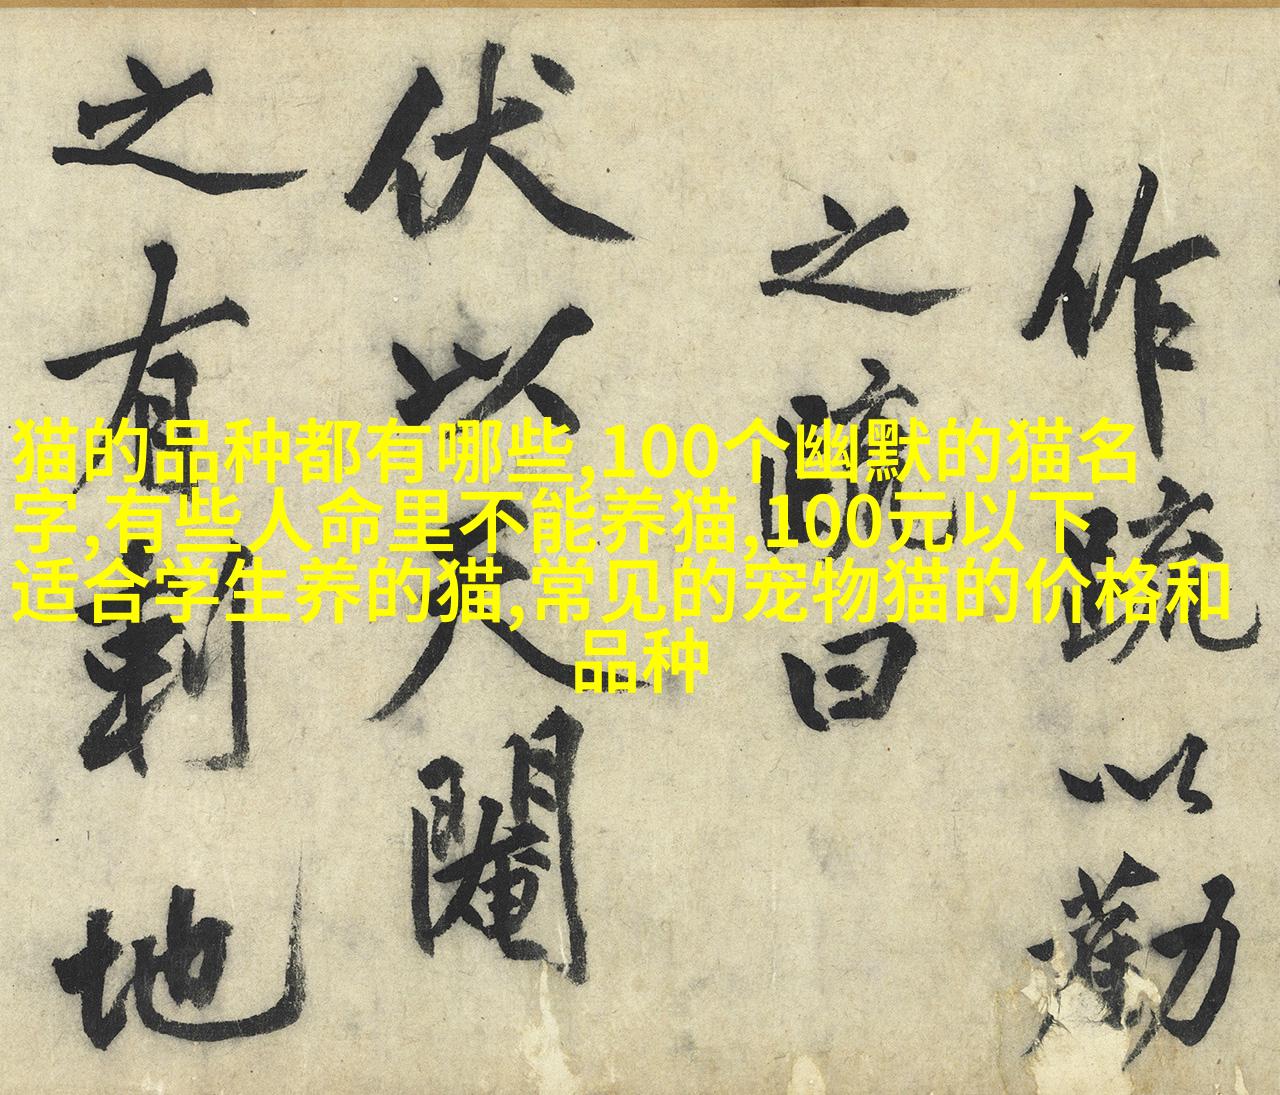 作疏以勸
之疏曰
伏以天
之有地
猫的品种都有哪些,100个幽默的猫名
字,有些人命里不能养猫,100元以下
适合学生养的猫,常见的宠物猫的价格和
品种